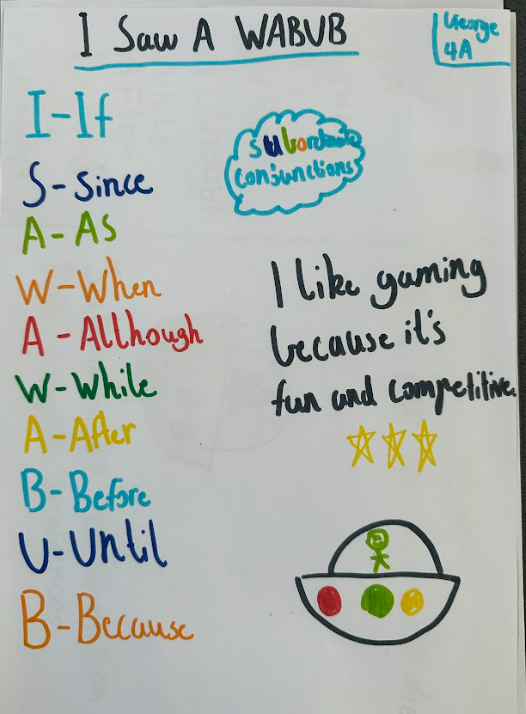 I Saw A WABUB
George
4A
I-If
S-Since
A-As
W-When
A-Allhough
W-While
A-After
B-Before
U-Until
B-Because
subordinate
conjunctions
I like gaming
because it's
fun and competitive.